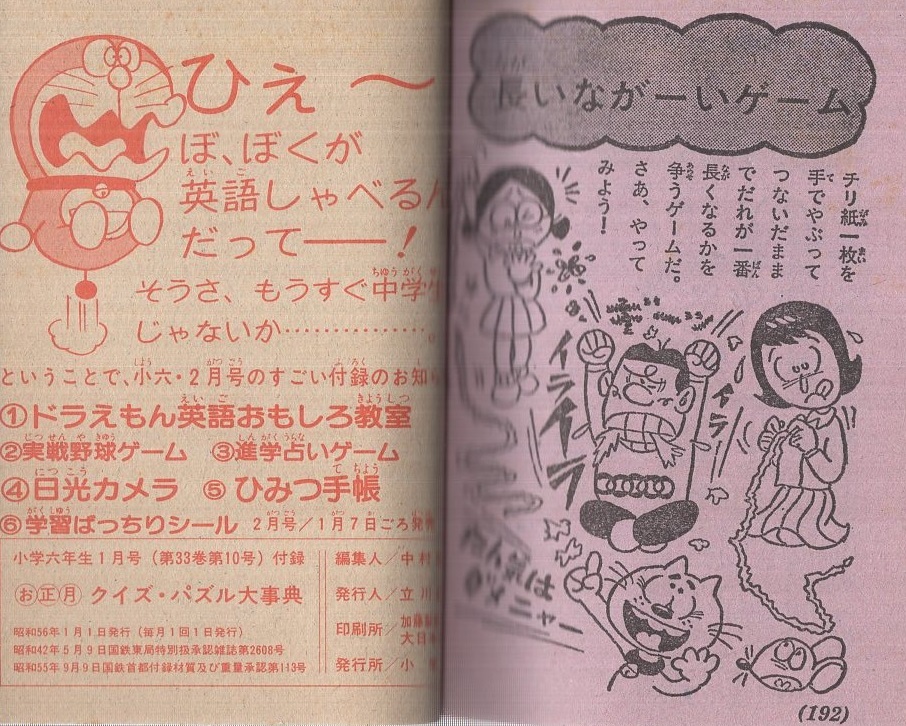 ひぇ〜
ぼ、ぼくが
英語しゃべるん
だって──!
そうさ、もうすぐ中学生
じゃないか……………。
ということで、小六・2月号のすごい付録のお知
①ドラえもん英語おもしろ教室
②実戦野球ゲーム ③進学占いゲーム
④日光カメラ ⑤ひみつ手帳
⑥学習ばっちりシール 2月号/1月7日ごろ発
小学六年生1月号(第33巻第10号)付録
お正月 クイズ・パズル大事典
昭和56年1月1日発行(毎月1回1日発行)
昭和42年5月9日国鉄東局特別扱承認雑誌第2608号
昭和55年9月9日国鉄首都付録材質及び重量承認第113号
編集人/中村
発行人/立川
印刷所/加藤
大日
発行所/小
長いながーいゲーム
チリ紙一枚を
手でやぶって
つないだまま
でだれが一番
長くなるかを
争うゲームだ。
さあ、やって
みよう!
イライラ
イライラ
は
ニャー
(192)